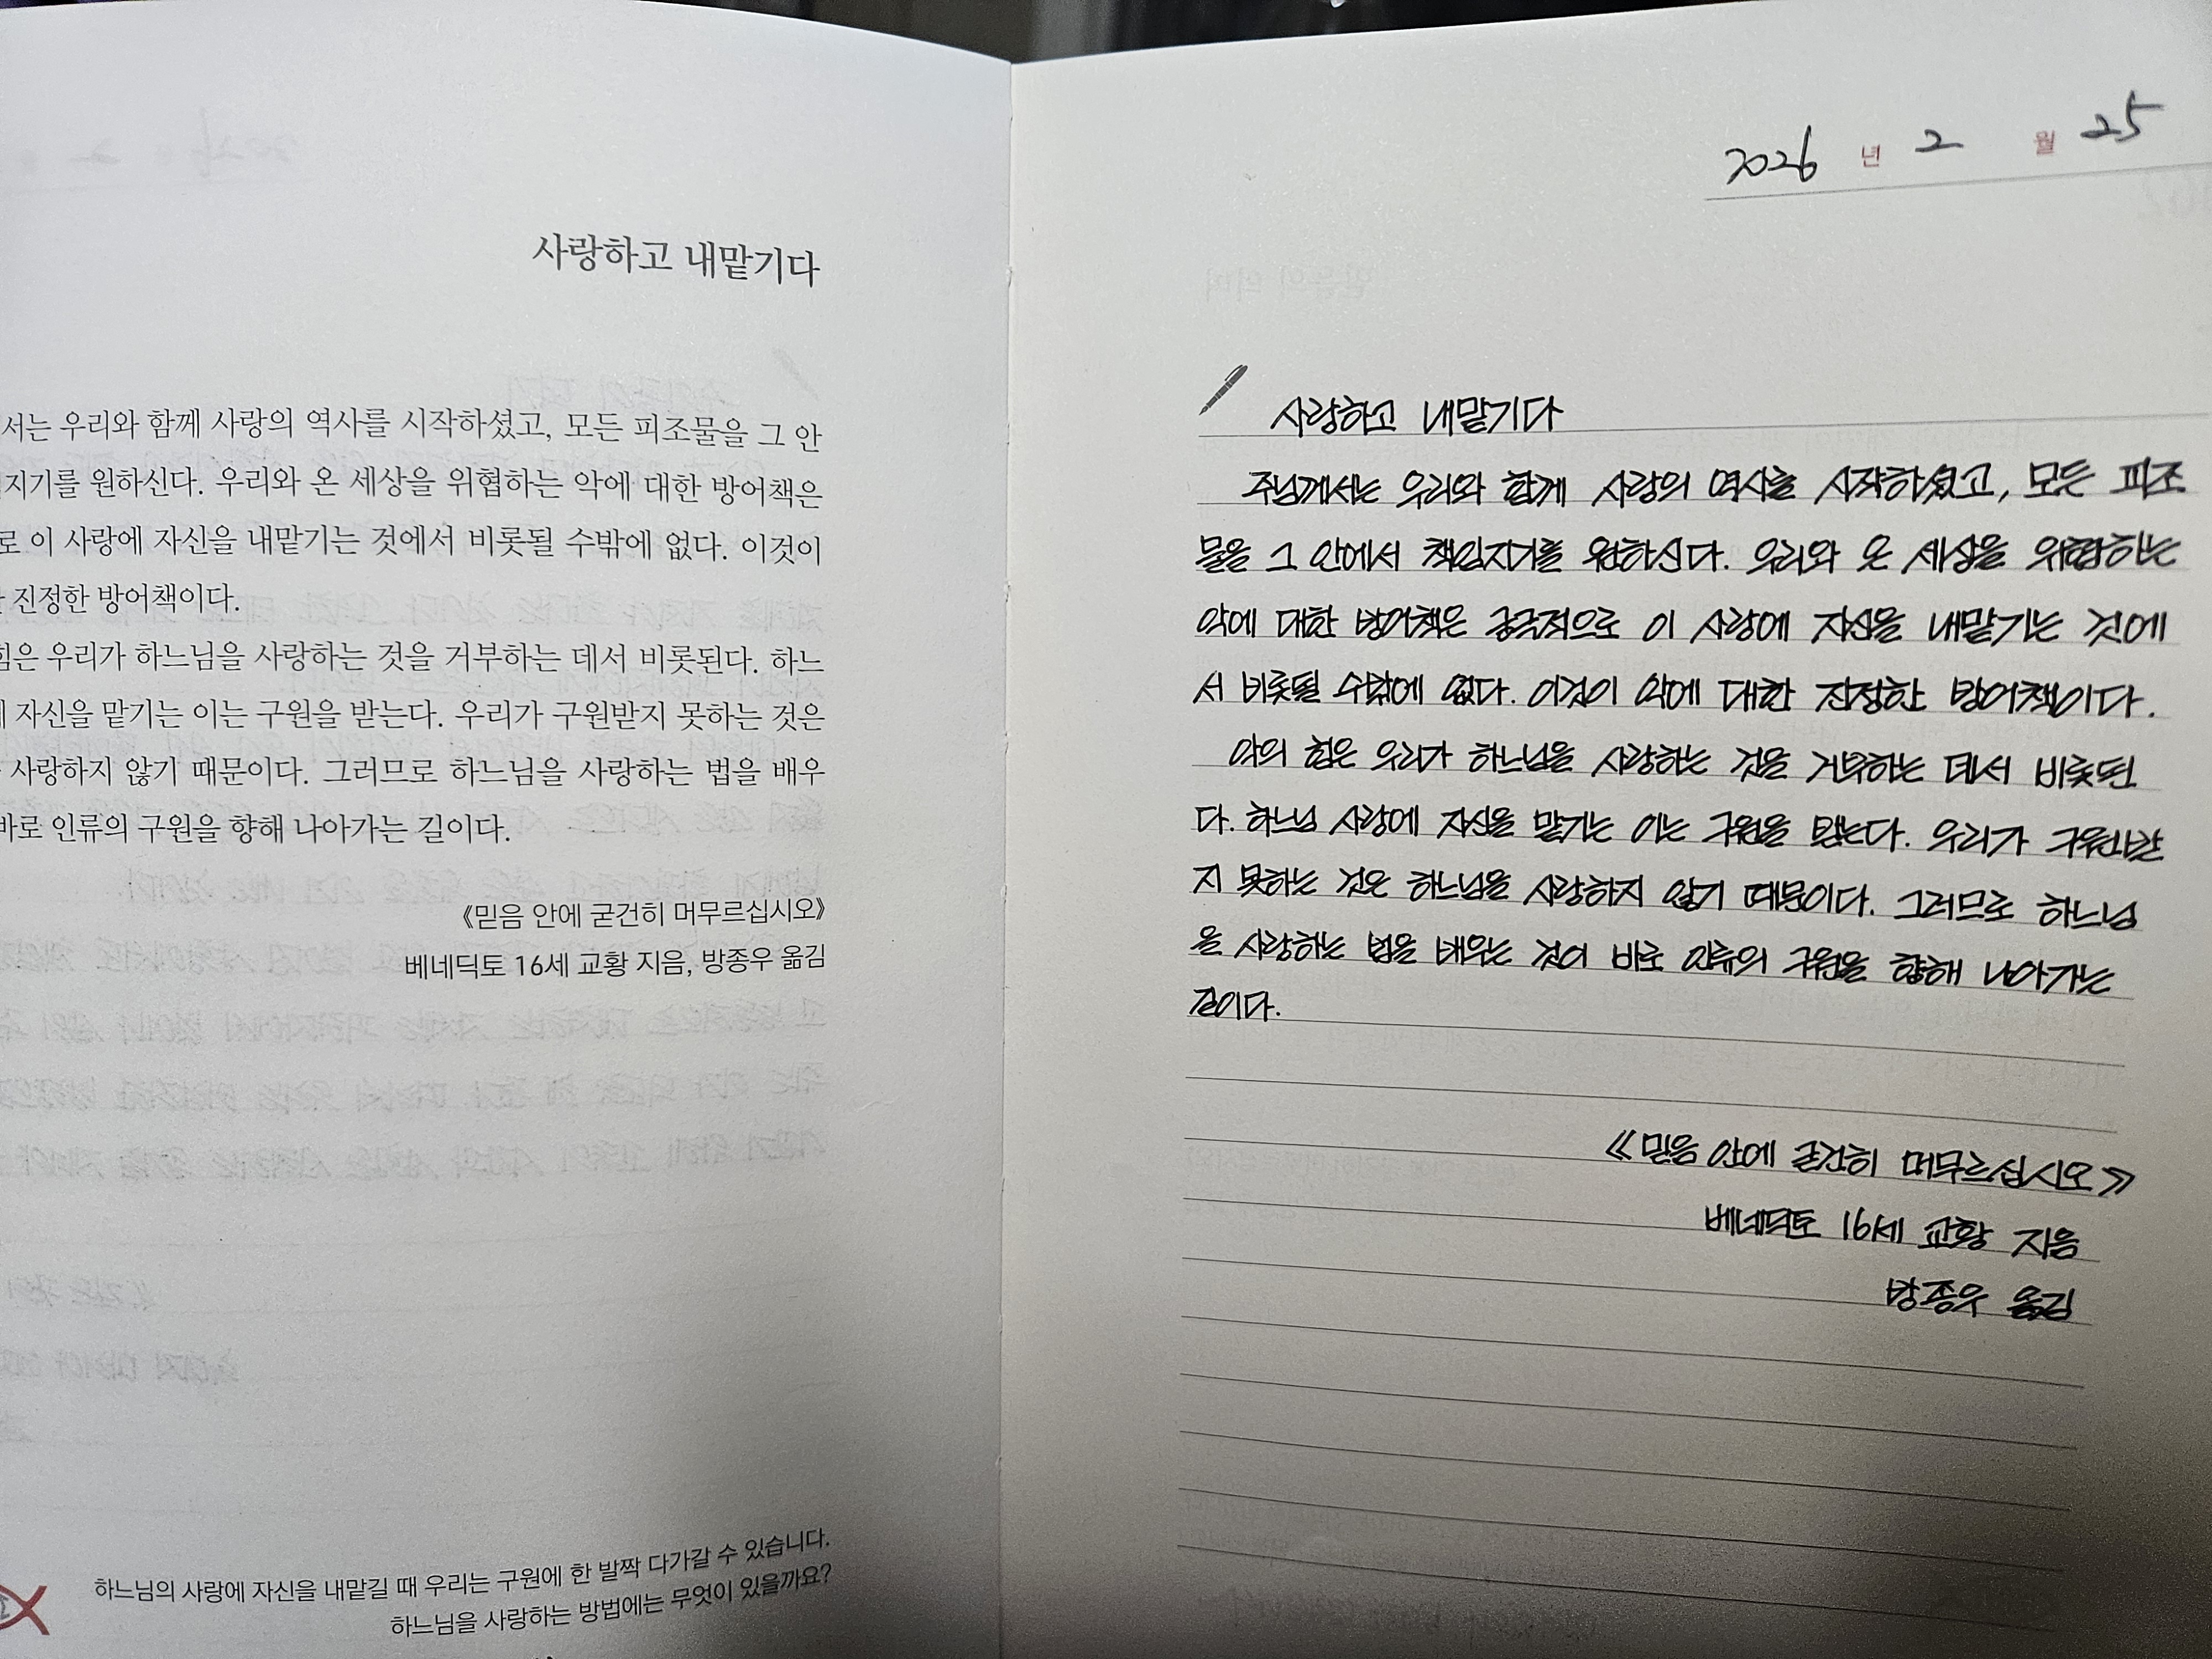 사랑하고 내맡기다
서는 우리와 함께 사랑의 역사를 시작하셨고, 모든 피조물을 그 안
지기를 원하신다. 우리와 온 세상을 위협하는 악에 대한 방어책은
로 이 사랑에 자신을 내맡기는 것에서 비롯될 수밖에 없다. 이것이
진정한 방어책이다.
힘은 우리가 하느님을 사랑하는 것을 거부하는 데서 비롯된다. 하느
자신을 맡기는 이는 구원을 받는다. 우리가 구원받지 못하는 것은
사랑하지 않기 때문이다. 그러므로 하느님을 사랑하는 법을 배우
바로 인류의 구원을 향해 나아가는 길이다.
《믿음 안에 굳건히 머무르십시오》
베네딕토 16세 교황 지음, 방종우 옮김
하느님의 사랑에 자신을 내맡길 때 우리는 구원에 한 발짝 다가갈 수 있습니다.
하느님을 사랑하는 방법에는 무엇이 있을까요?
2026 년 2 월 25
사랑하고 내맡기다
주님께서는 우리와 함께 사랑의 역사를 시작하셨고, 모든 피조
물을 그 안에서 책임지기를 원하신다. 우리와 온 세상을 위협하는
악에 대한 방어책은 궁극적으로 이 사랑에 자신을 내맡기는 것에
서 비롯될 수밖에 없다. 이것이 악에 대한 진정한 방어책이다.
악의 힘은 우리가 하느님을 사랑하는 것을 거부하는 데서 비롯된
다. 하느님 사랑에 자신을 맡기는 이는 구원을 받는다. 우리가 구원받
지 못하는 것은 하느님을 사랑하지 않기 때문이다. 그러므로 하느님
을 사랑하는 법을 배우는 것이 바로 인류의 구원을 향해 나아가는
길이다.
《믿음 안에 굳건히 머무르십시오》
베네딕토 16세 교황 지음
방종우 옮김